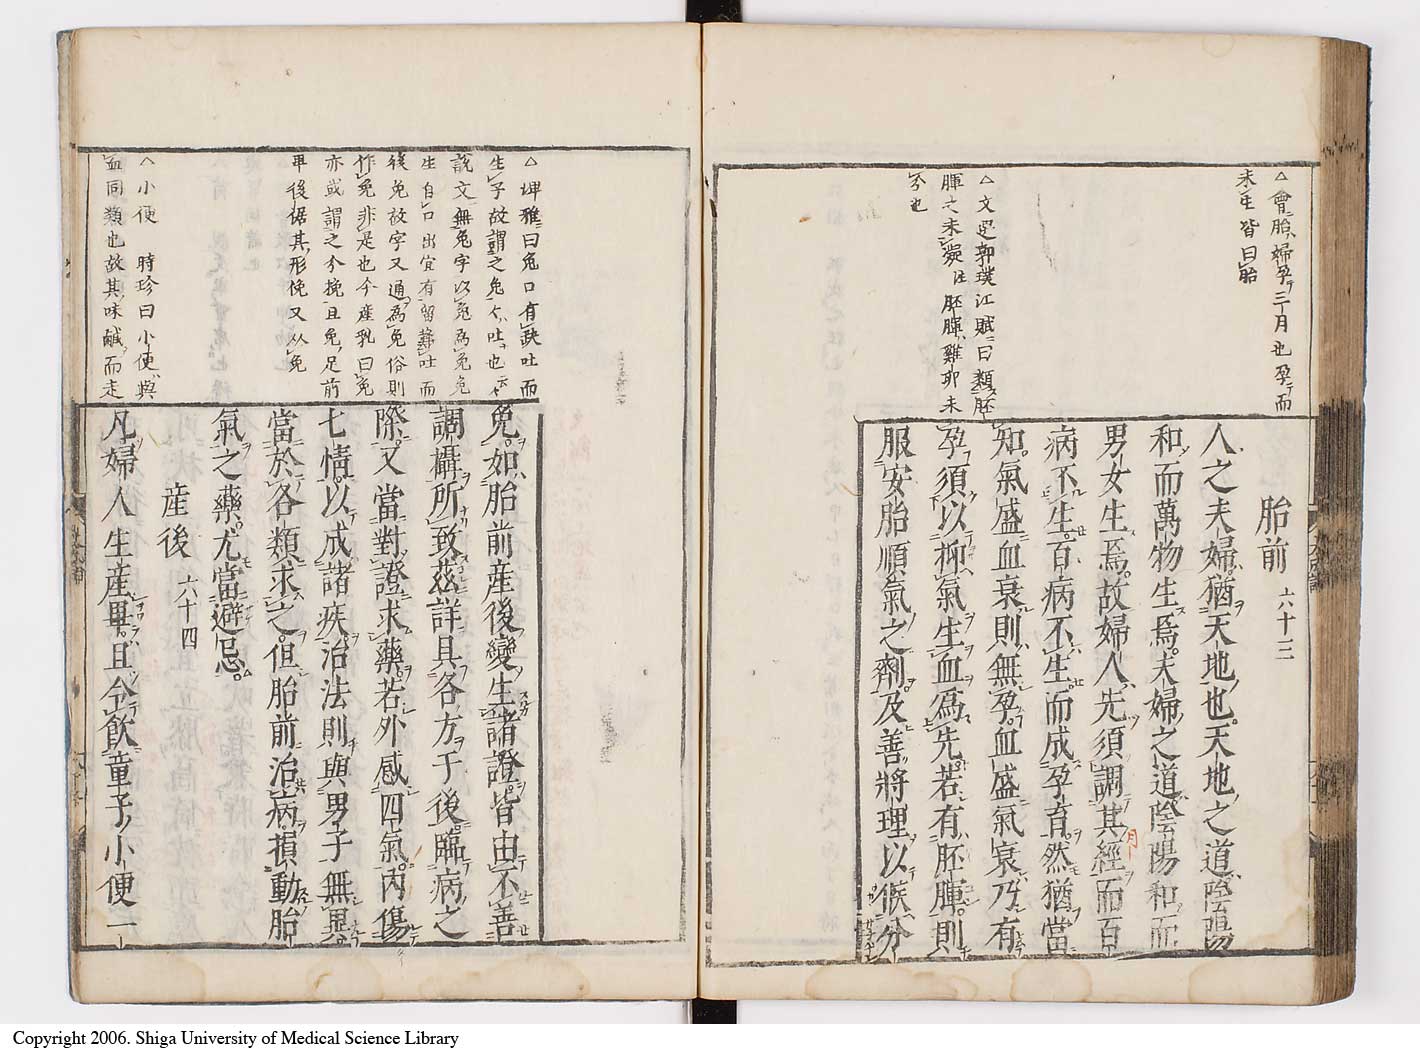 胎前 六十三
人之夫婦猶天地也天地之道陰陽
和而萬物生焉夫婦之道陰陽和而
男女生焉故婦人先須調其經而百
病不生百病不生而成孕育然猶當
知氣盛血衰則無孕血盛氣衰乃有
孕須以抑氣生血爲先若有胚腪則
服安胎順氣之劑及善將理以候分
△會胎婦孕三月也孕而
未生皆曰胎
△文選郭璞江賦曰類胚
腪之未凝注胚腪雞卵未
分也
娩如胎前產後變生諸證皆由不善
調攝所致茲詳具各方于後臨病之
際又當對證求藥若外感四氣內傷
七情以成諸疾治法則與男子無異
當於各類求之但胎前治病損動胎
氣之藥尤當避忌
産後 六十四
凡婦人生産畢且令飲童子小便一
△埤雅曰兔口有缺吐而
生子故謂之兔兔吐也云々
說文無免字以兔爲免兔
生自口出宜有留難吐而
後免故字又通爲免俗則
作兔非是也今産乳曰免
亦或謂之分挽且兔足前
卑後倨其形俛又从免
△小便 時珍曰小便與
血同類也故其味鹹而走
Copyright 2006. Shiga University of Medical Science Library